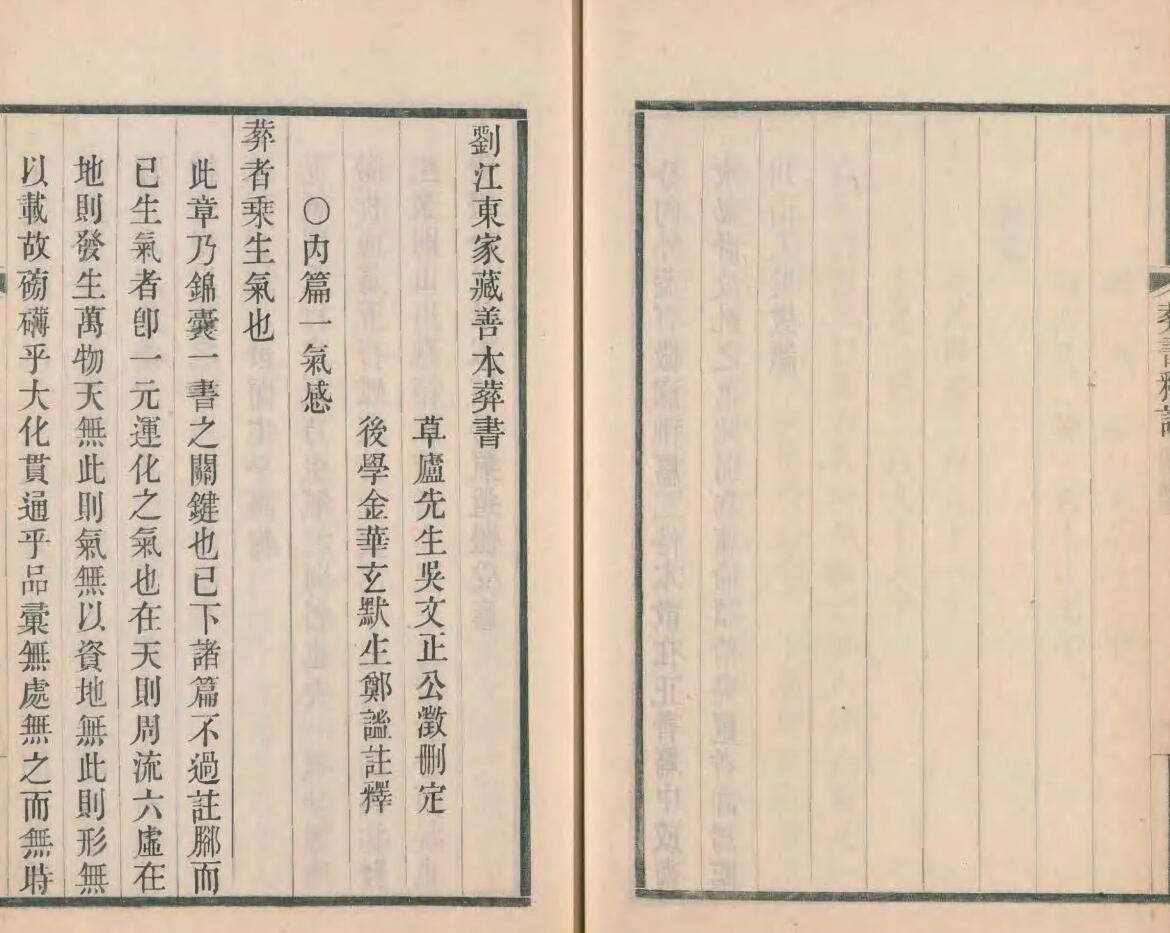 葬書釋註
劉江東家藏善本葬書
草廬先生吳文正公澂刪定
後學金華玄默生鄭謐註釋
〇內篇一氣感
葬者乗生氣也
此章乃錦囊一書之關鍵也已下諸篇不過註腳而
已生氣者卽一元運化之氣也在天則周流六虛在
地則發生萬物天無此則氣無以資地無此則形無
以載故磅礴乎大化貫通乎品彙無處無之而無時